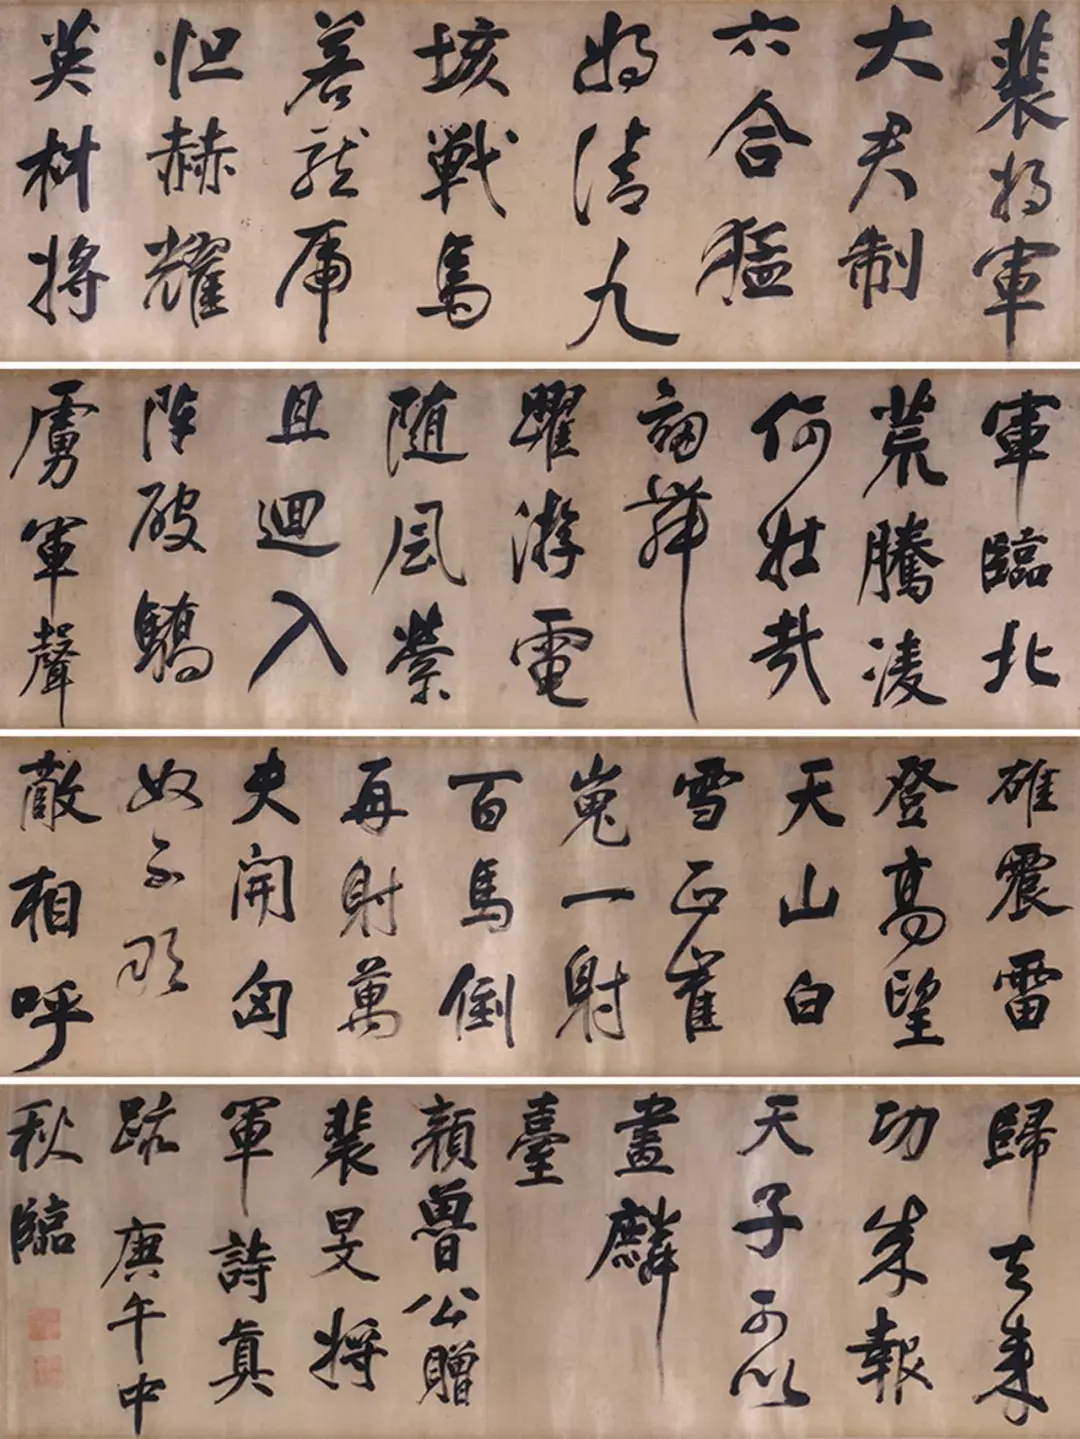 裴将軍
大君制
六合猛
将清九
垓戦馬
若龍虎
烜赫耀
英材將
軍臨北
荒騰凌
何壮哉
劒舞
躍游電
随風縈
且迴入
陣破驕
虜軍聲
雄震雷
登高望
天山白
雪正崔
嵬一射
百馬倒
再射萬
夫開匈
奴不敢
敵相呼
歸去来
功成報
天子可以
畫麟
臺
顔魯公贈
裴旻将
軍詩真
跡庚午中
秋臨